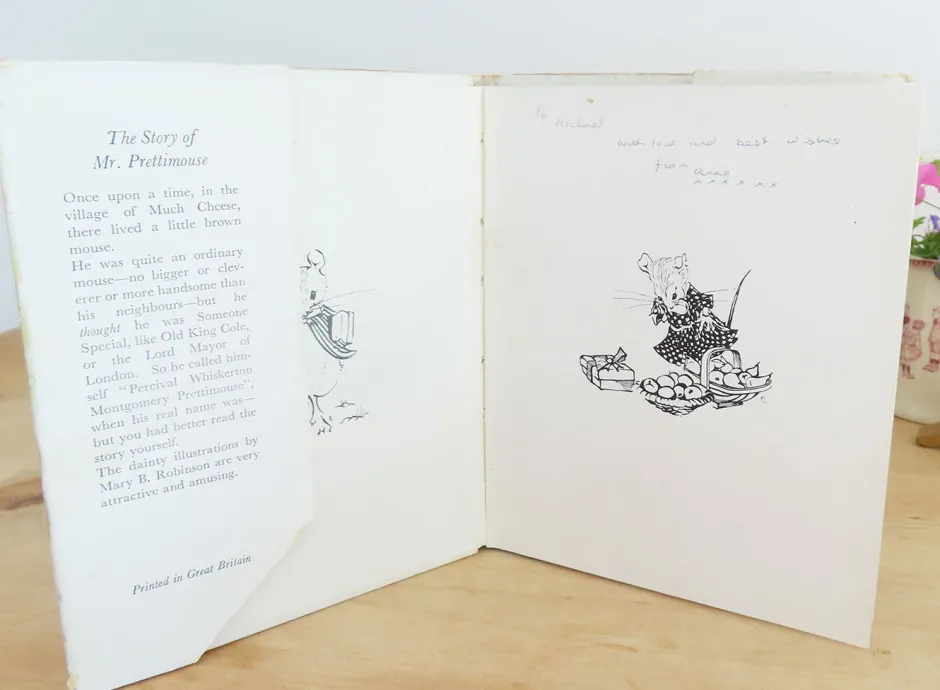 The Story of
Mr. Prettimouse
Once upon a time, in the
village of Much Cheese,
there lived a little brown
mouse.
He was quite an ordinary
mouse—no bigger or clev-
erer or more handsome than
his neighbours—but he
thought he was Someone
Special, like Old King Cole,
or the Lord Mayor of
London. So he called him-
self "Percival Whiskerton
Montgomery Prettimouse",
when his real name was—
but you had better read the
story yourself.
The dainty illustrations by
Mary B. Robinson are very
attractive and amusing.
Printed in Great Britain
To Michael
with love and best wishes
from
x x x x x x